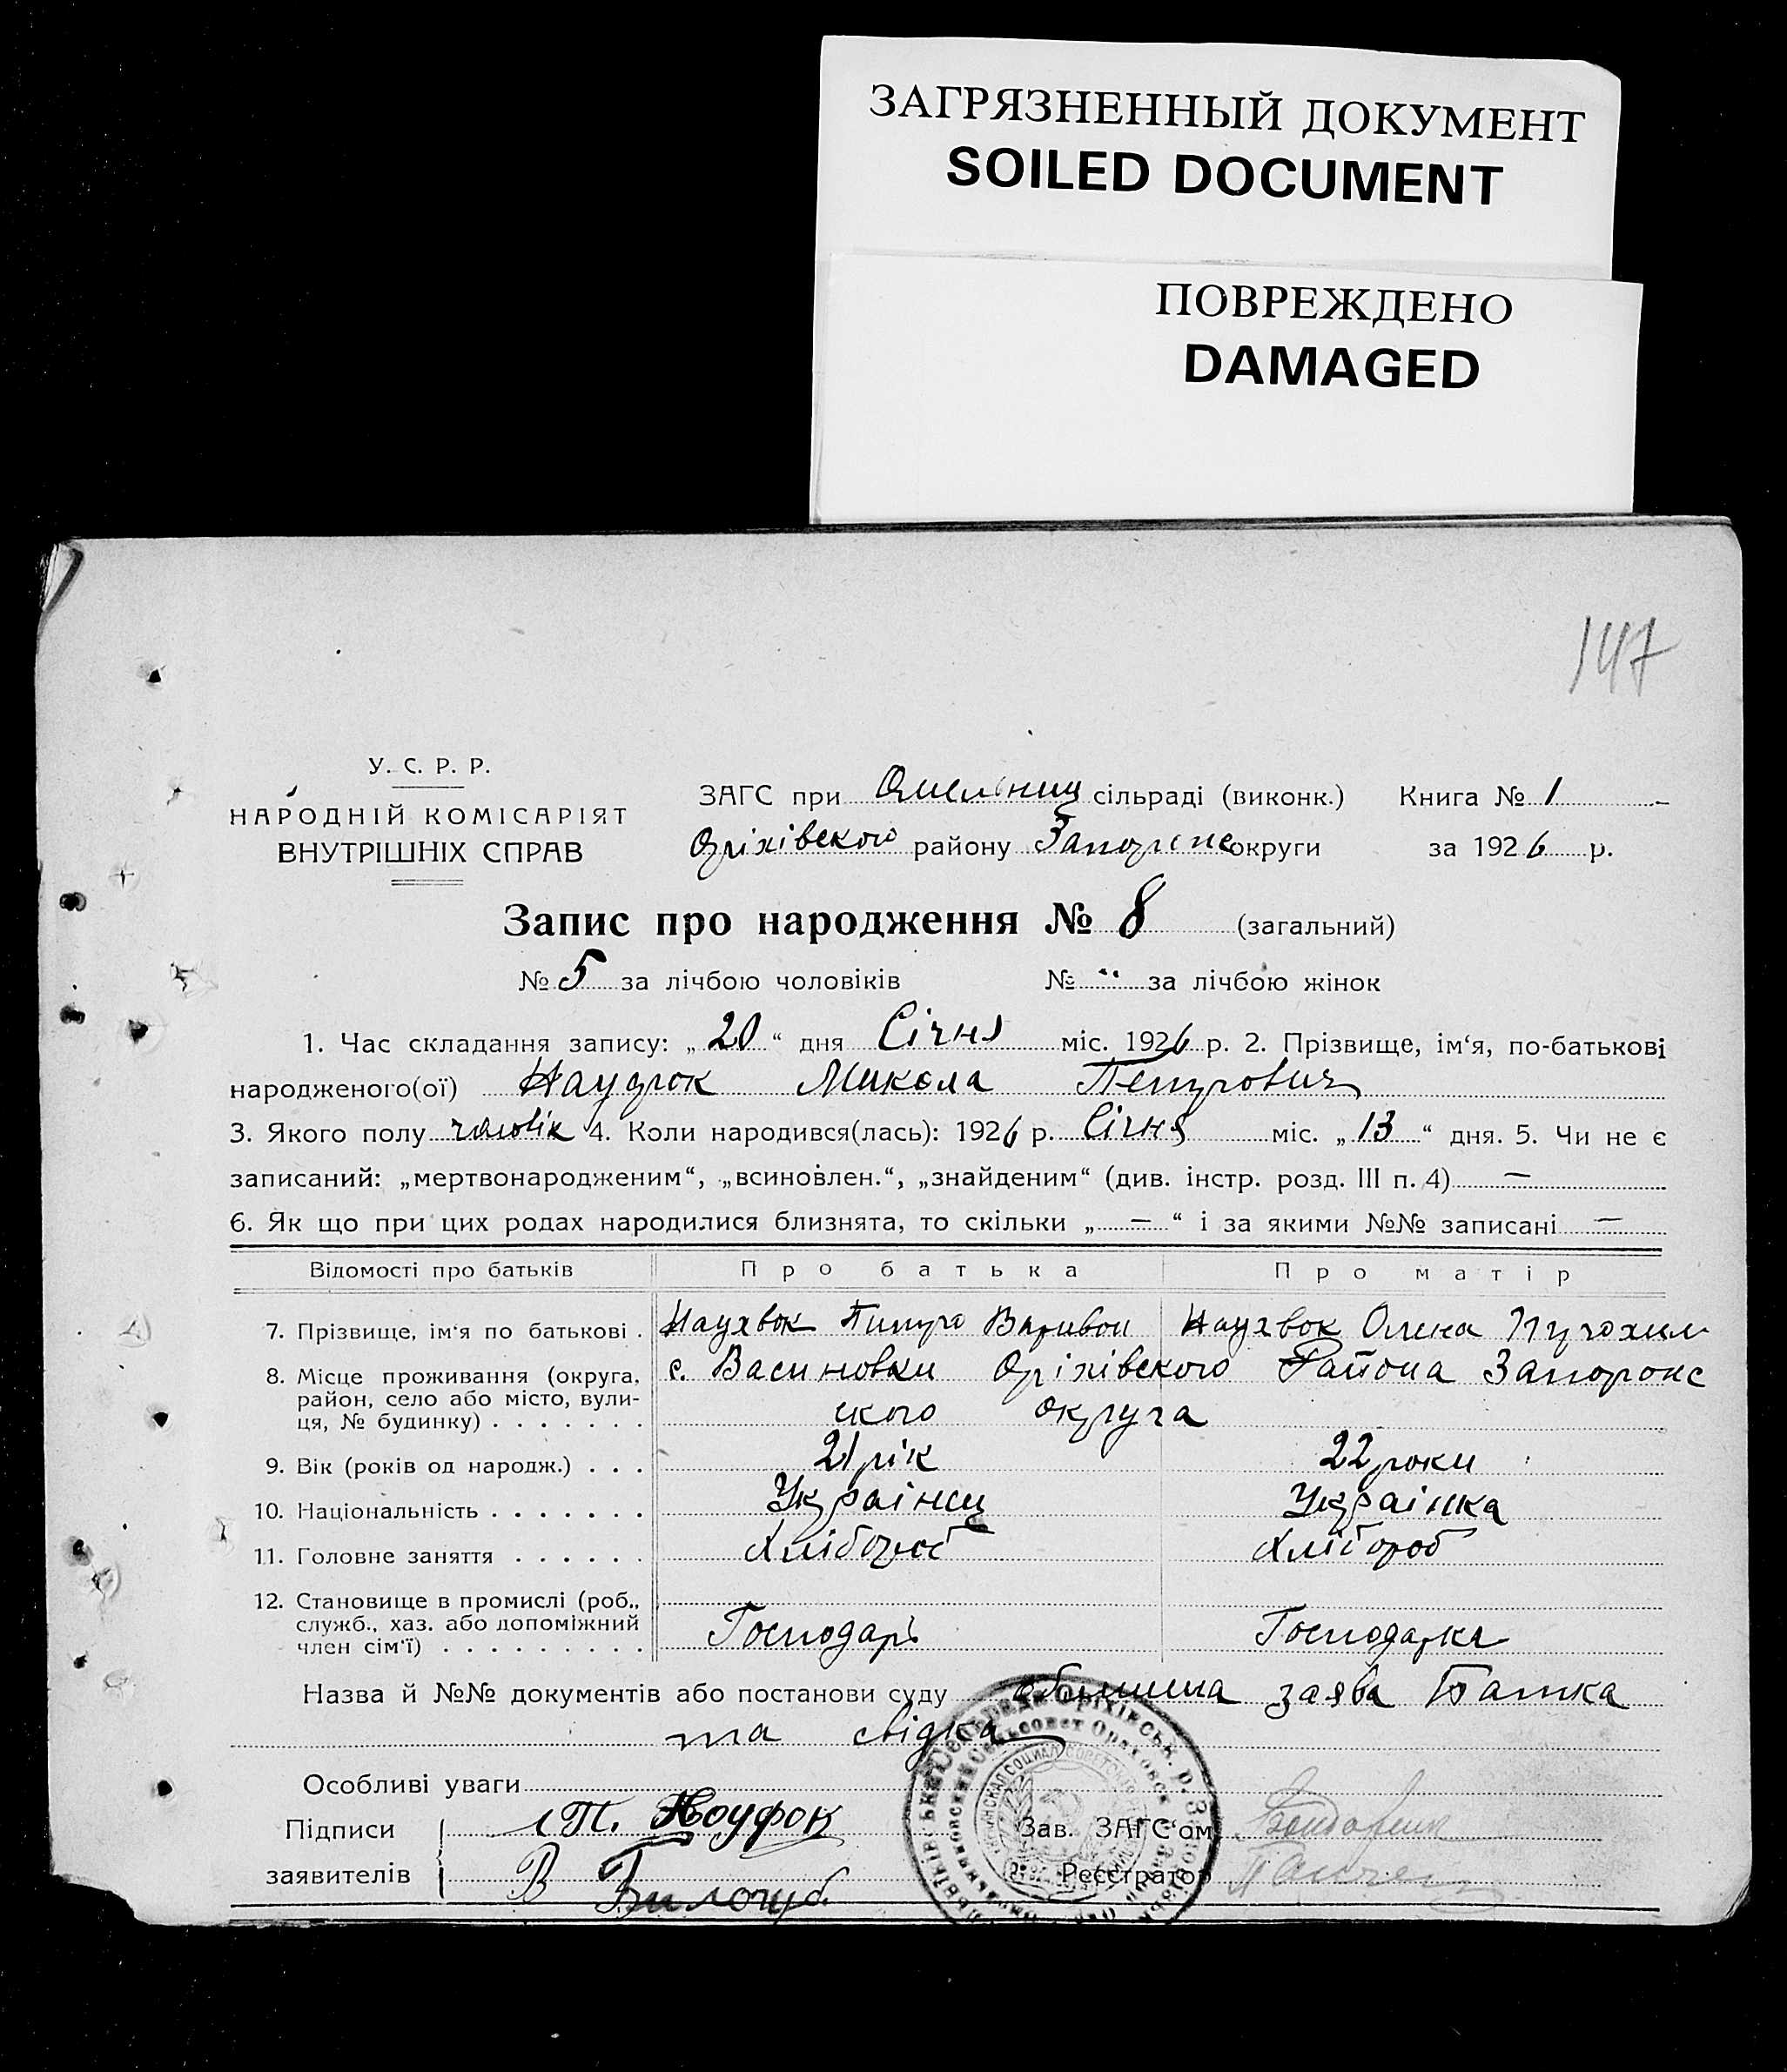 ЗАГРЯЗНЕННЫЙ ДОКУМЕНТ
SOILED DOCUMENT
ПОВРЕЖДЕНО
DAMAGED
147
У. С. Р. Р.
НАРОДНІЙ КОМІСАРІЯТ
ВНУТРІШНІХ СПРАВ
ЗАГС при сільраді (виконк.) Книга № 1
Оріхівского району округи за 1926 р.
Запис про народження № 8 (загальний)
№ 5 за лічбою чоловіків № " за лічбою жінок
1. Час складання запису: „20“ дня Січня міс. 1926 р. 2. Прізвище, ім‘я, по-батькові
народженого(ої) Микола Петрович
3. Якого полу чоловік 4. Коли народився(лась): 1926 р. Січня міс. „13“ дня. 5. Чи не є
записаний: „мертвонародженим“, „всиновлен.“, „знайденим“ (див. інстр. розд. III п. 4) —
6. Як що при цих родах народилися близнята, то скільки „—“ і за якими №№ записані —
Відомості про батьків Про батька Про матір
7. Прізвище, ім‘я по батькові . Наухвок Наухвок Олена
8. Місце проживання (округа, район, село або місто, вули-ця, № будинку) . . . . . . . с. Васиновки Оріхівского Района Запорожс
ского округа
9. Вік (років од народж.) . . . 21 рік 22 роки
10. Національність . . . . . . . Українец Українка
11. Головне заняття . . . . . . Хлібороб Хлібороб
12. Становище в промислі (роб., служб., хаз. або допоміжний член сім‘ї) . . . . . . . . . Господарь Господарка
Назва й №№ документів або постанови суду заява Батка
та свідка
Особливі уваги
Підписи П. Ноуфок Зав. ЗАГС‘ом
заявителів В Билогуб Реєстратор